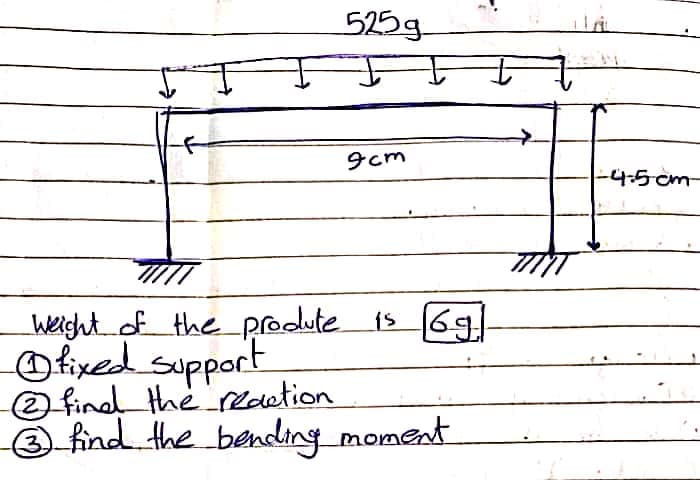 525g
9cm
4.5 cm
Weight of the produte is 6g
① fixed support
② find the reaction
③ find the bending moment